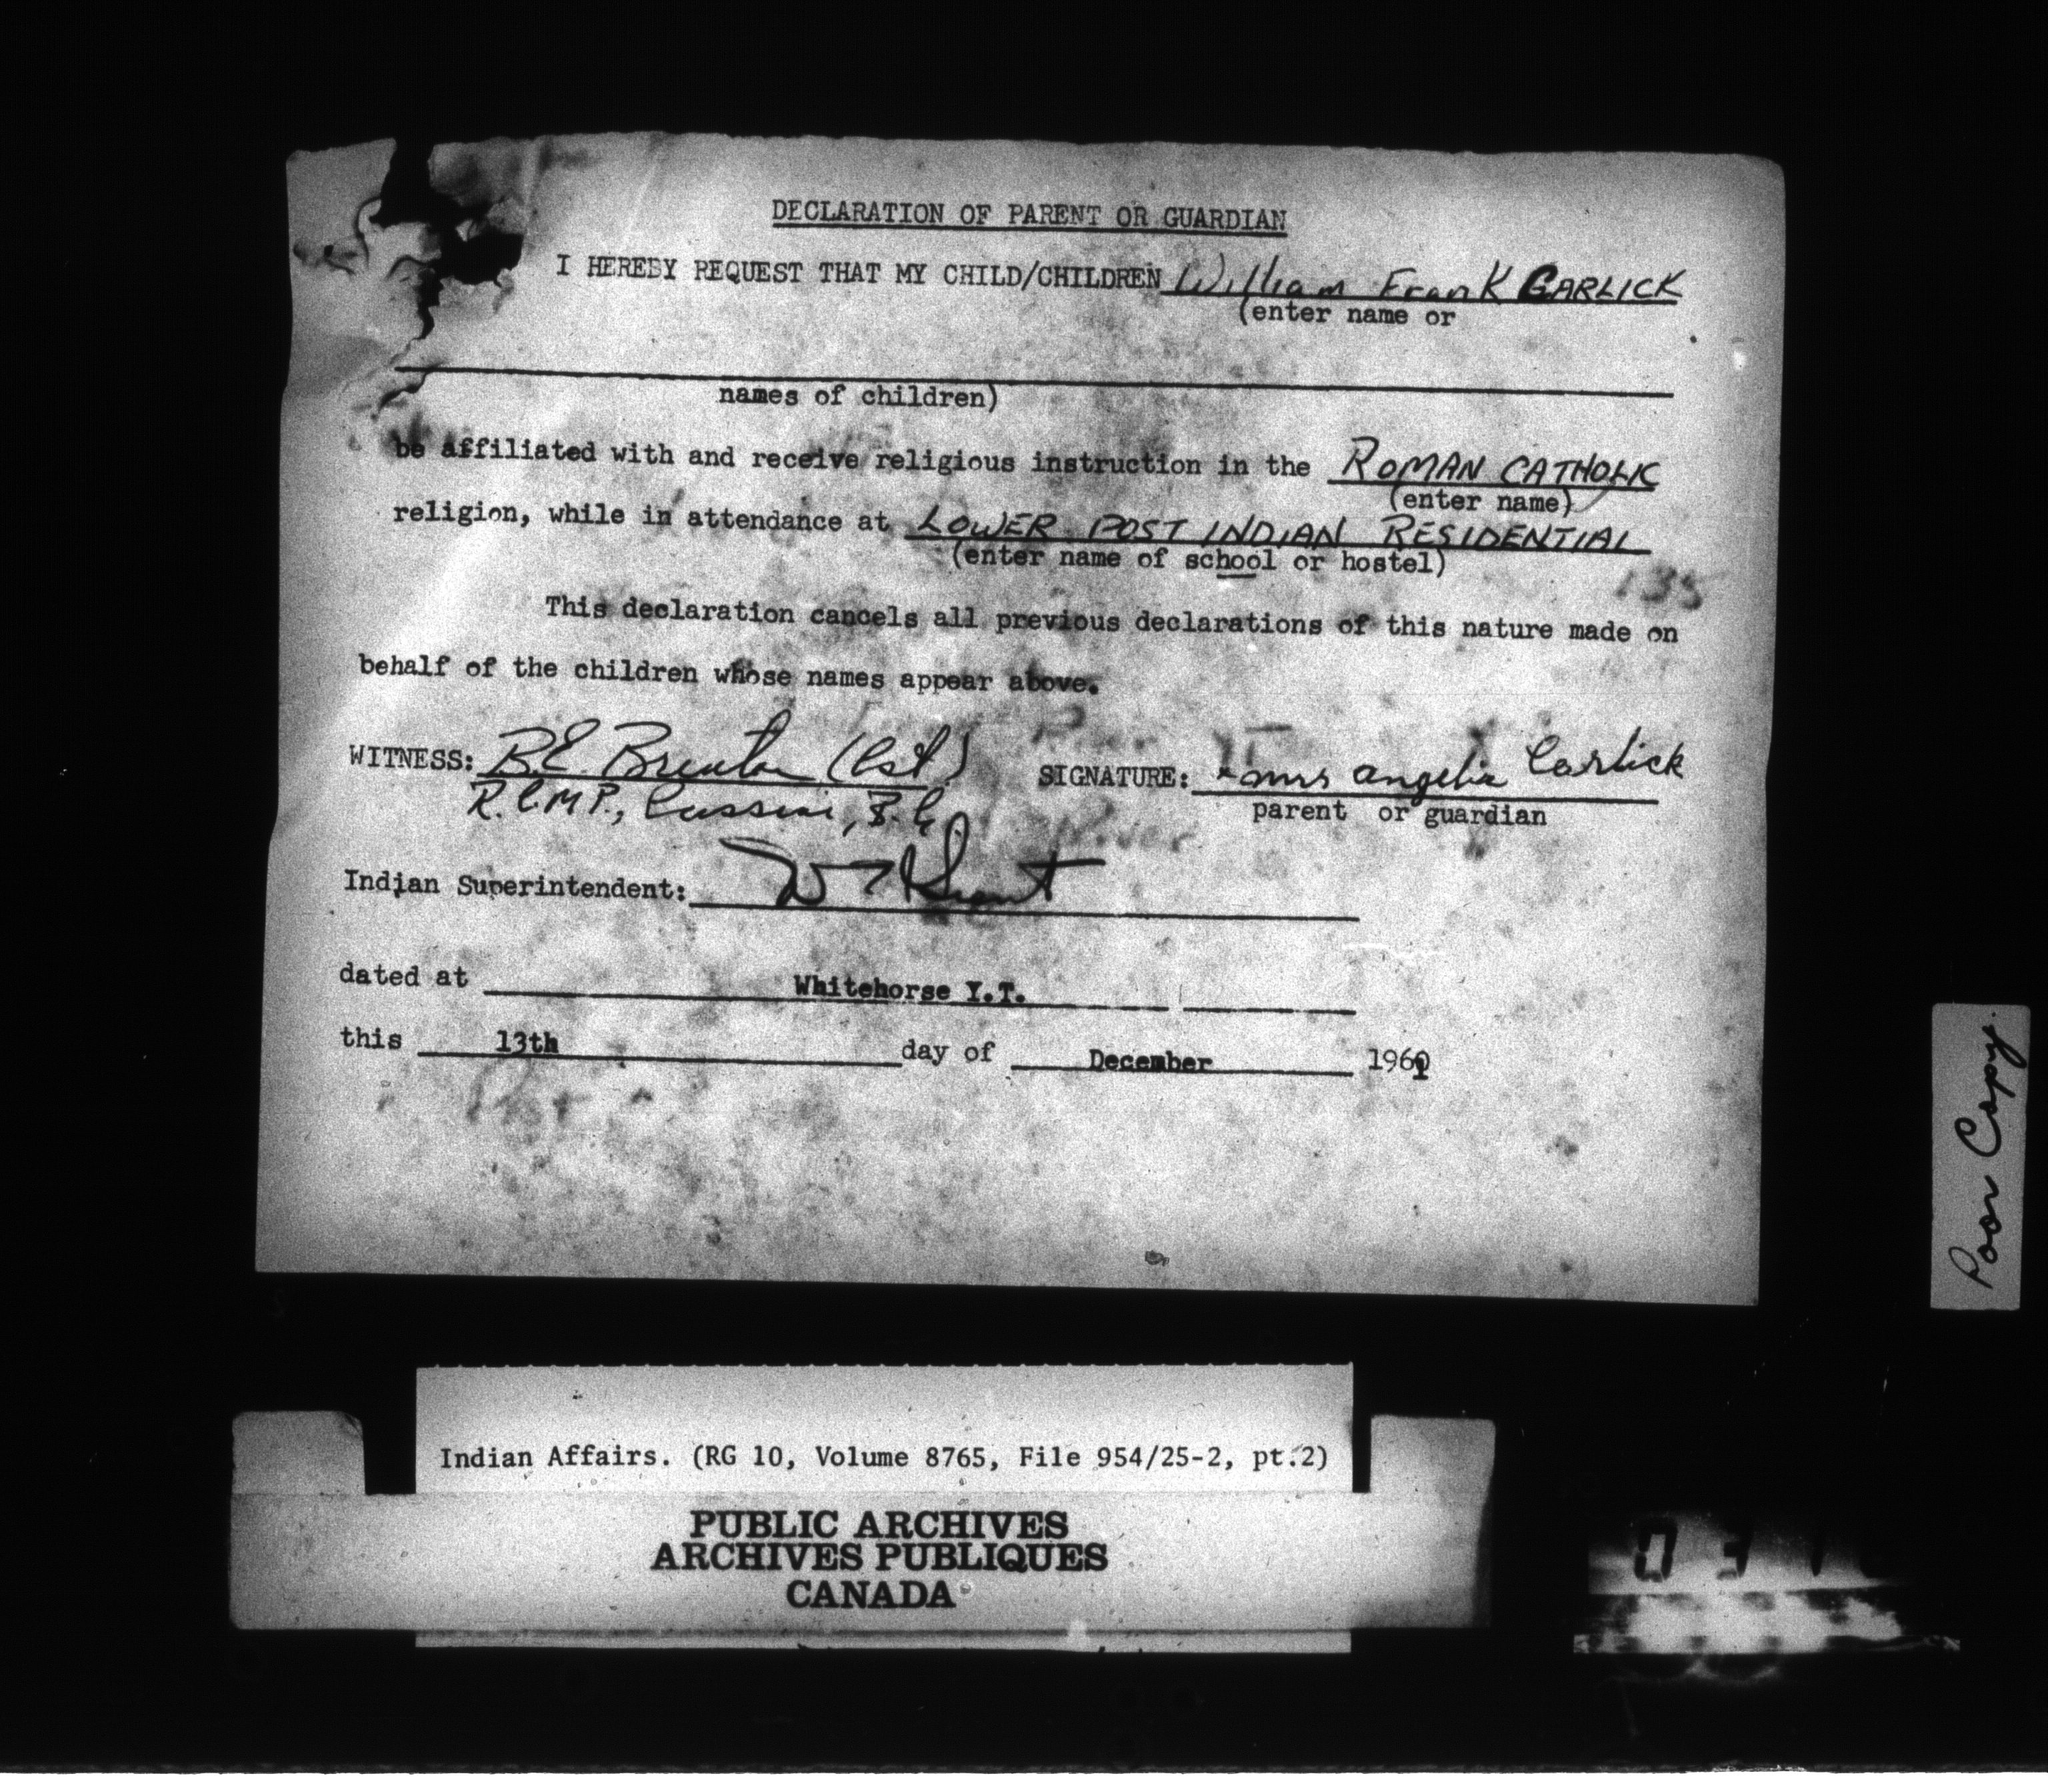 DECLARATION OF PARENT OR GUARDIAN
I HEREBY REQUEST THAT MY CHILD/CHILDREN William Frank GARLICK
(enter name or
names of children)
be affiliated with and receive religious instruction in the ROMAN CATHOLIC
(enter name)
religion, while in attendance at LOWER POST INDIAN RESIDENTIAL
(enter name of school or hostel)
135
This declaration cancels all previous declarations of this nature made on
behalf of the children whose names appear above.
WITNESS: B.E. Brenton (Cst.) SIGNATURE: x mrs angelia Carlick
R.C.M.P., Cassiar, B.C. parent or guardian
Indian Superintendent:
dated at Whitehorse Y.T.
this 13th day of December 1961
Poor Copy.
Indian Affairs. (RG 10, Volume 8765, File 954/25-2, pt.2)
PUBLIC ARCHIVES
ARCHIVES PUBLIQUES
CANADA